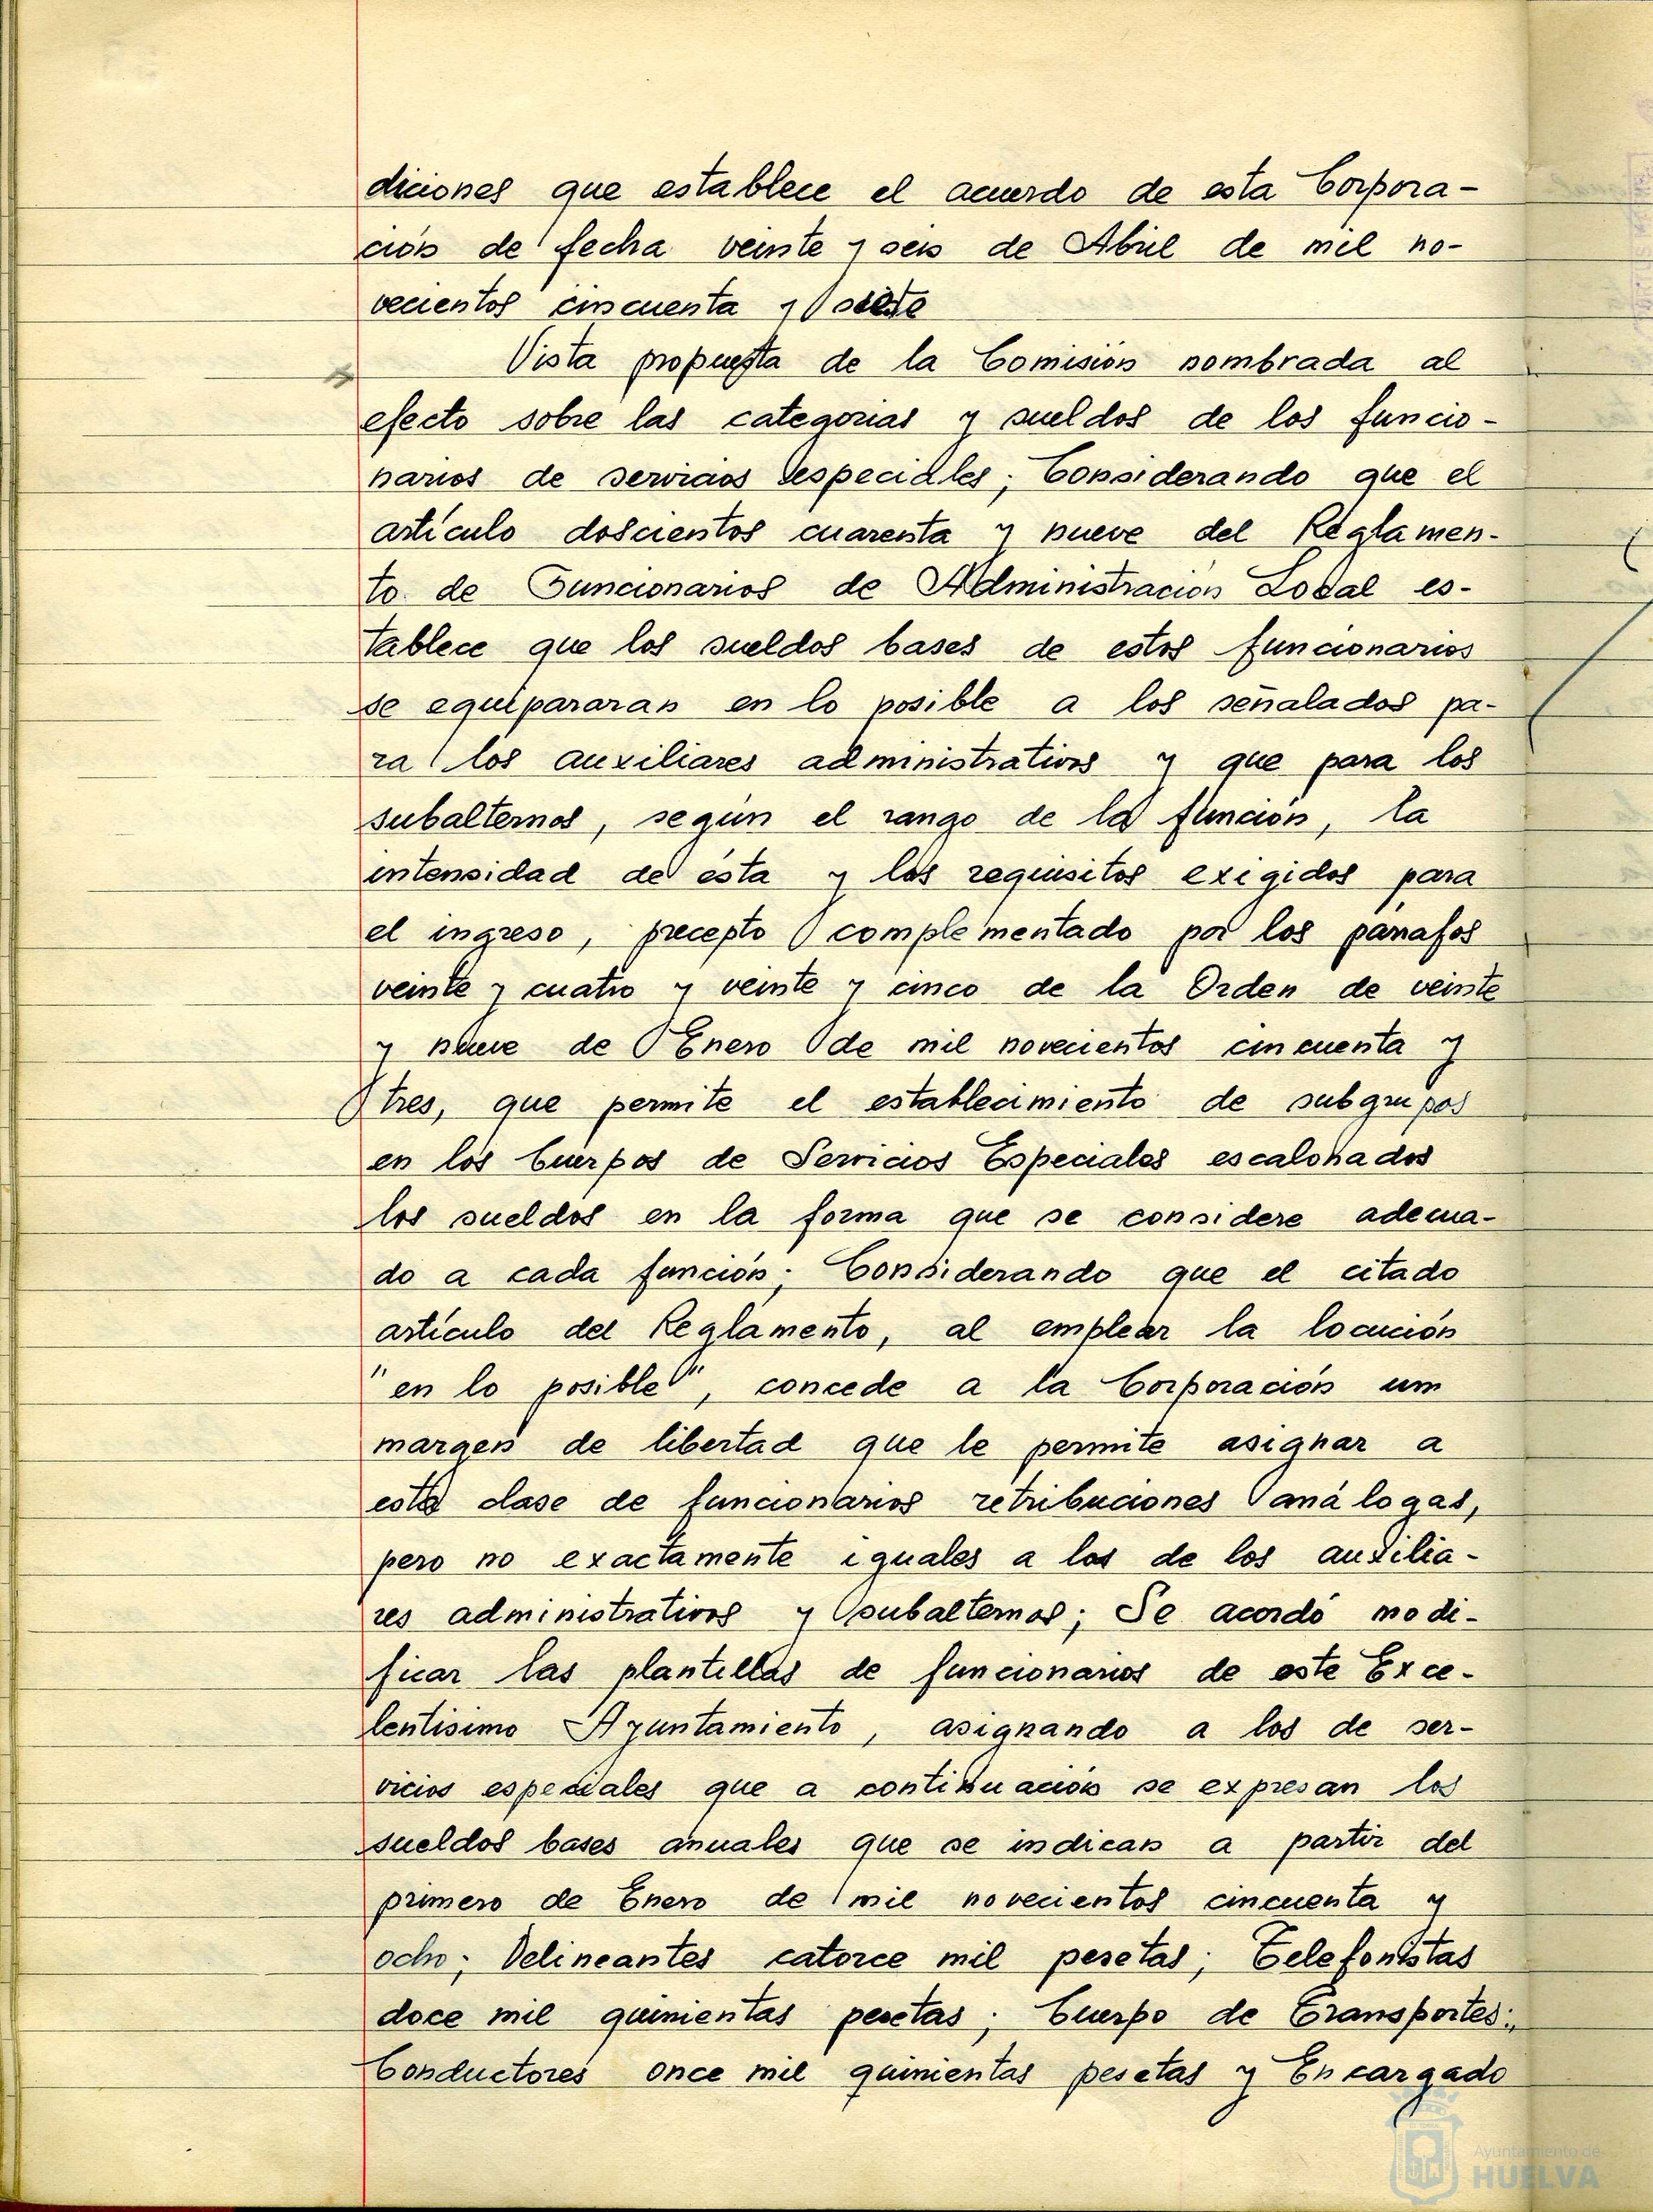 diciones que establece el acuerdo de esta Corpora-
ción de fecha veinte y seis de Abril de mil no-
vecientos cincuenta y siete
Vista propuesta de la Comisión nombrada al
efecto sobre las categorias y sueldos de los funcio-
narios de servicios especiales; Considerando que el
artículo doscientos cuarenta y nueve del Reglamen-
to de Funcionarios de Administración Local es-
tablece que los sueldos bases de estos funcionarios
se equipararan en lo posible a los señalados pa-
ra los auxiliares administrativos y que para los
subalternos, según el rango de la función, la
intensidad de ésta y los requisitos exigidos para
el ingreso, precepto complementado por los párrafos
veinte y cuatro y veinte y cinco de la Orden de veinte
y nueve de Enero de mil novecientos cincuenta y
tres, que permite el establecimiento de subgrupos
en los Cuerpos de Servicios Especiales escalonados
los sueldos en la forma que se considere adecua-
do a cada función; Considerando que el citado
artículo del Reglamento, al emplear la locución
"en lo posible", concede a la Corporación um
margen de libertad que le permite asignar a
esta clase de funcionarios retribuciones análogas,
pero no exactamente iguales a las de los auxilia-
res administrativos y subalternos; Se acordó modi-
ficar las plantillas de funcionarios de este Exce-
lentisimo Ayuntamiento, asignando a los de ser-
vicios especiales que a continuación se expresan los
sueldos bases anuales que se indican a partir del
primero de Enero de mil novecientos cincuenta y
ocho; Delineantes catorce mil pesetas; Telefonistas
doce mil quinientas pesetas; Cuerpo de Transportes:
Conductores once mil quinientas pesetas y Encargado
Ayuntamiento de
HUELVA